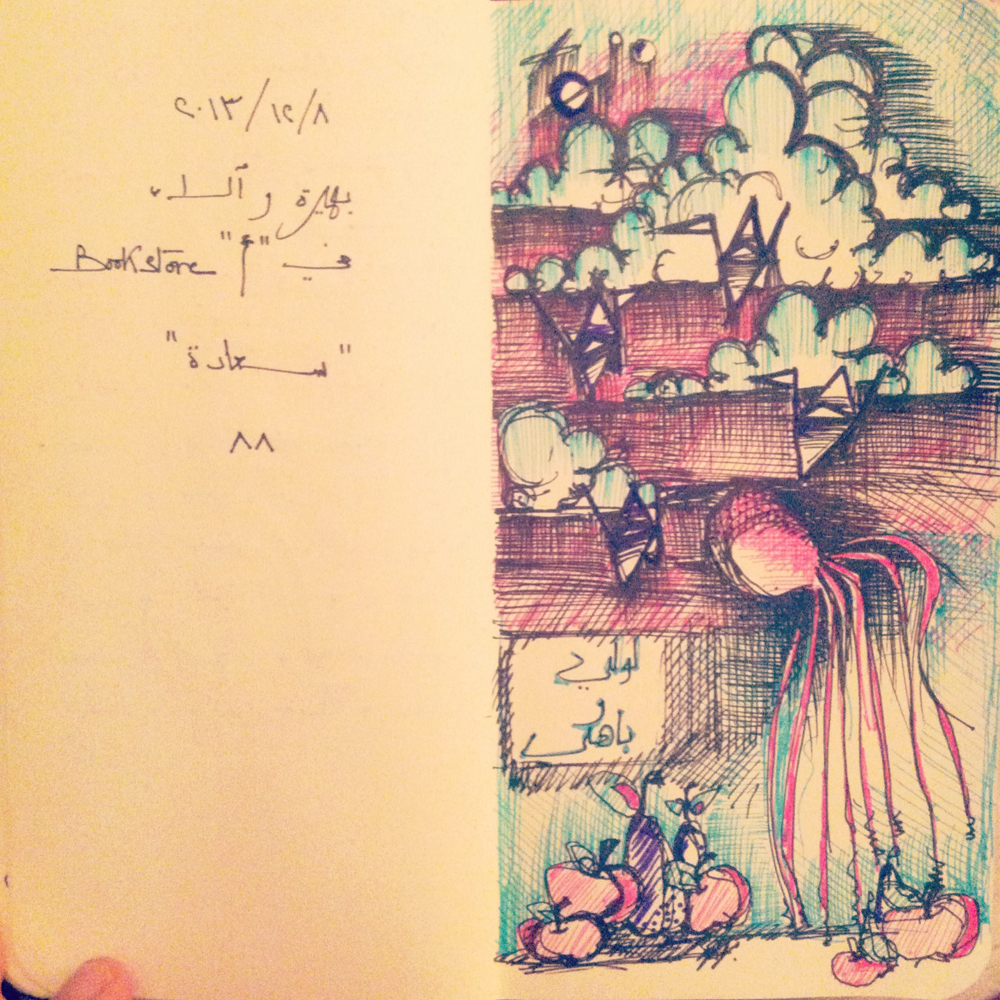 ٢٠١٣/١٢/٨
بهيرة و آلاء
في "أ" Bookstore
"سعادة"
٨٨
و
باهي